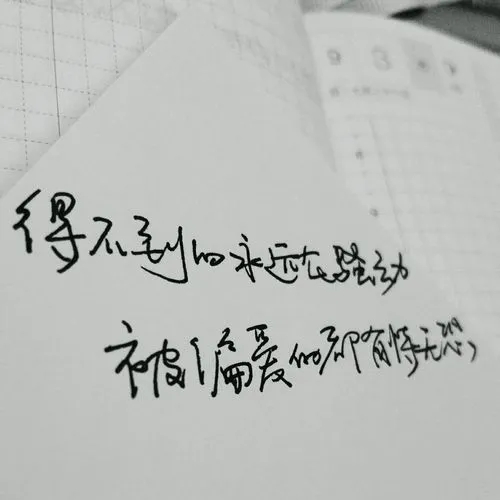 得不到的永远在骚动
被偏爱的却有恃无恐